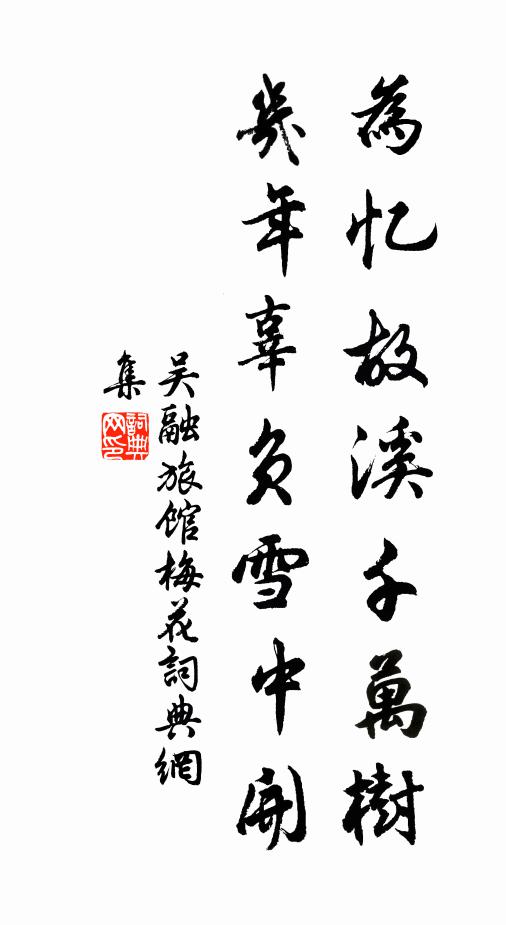 為忆故溪千萬樹
幾年辜负雪中開
吴融旅馆梅花詞典網
集
詞典
网印